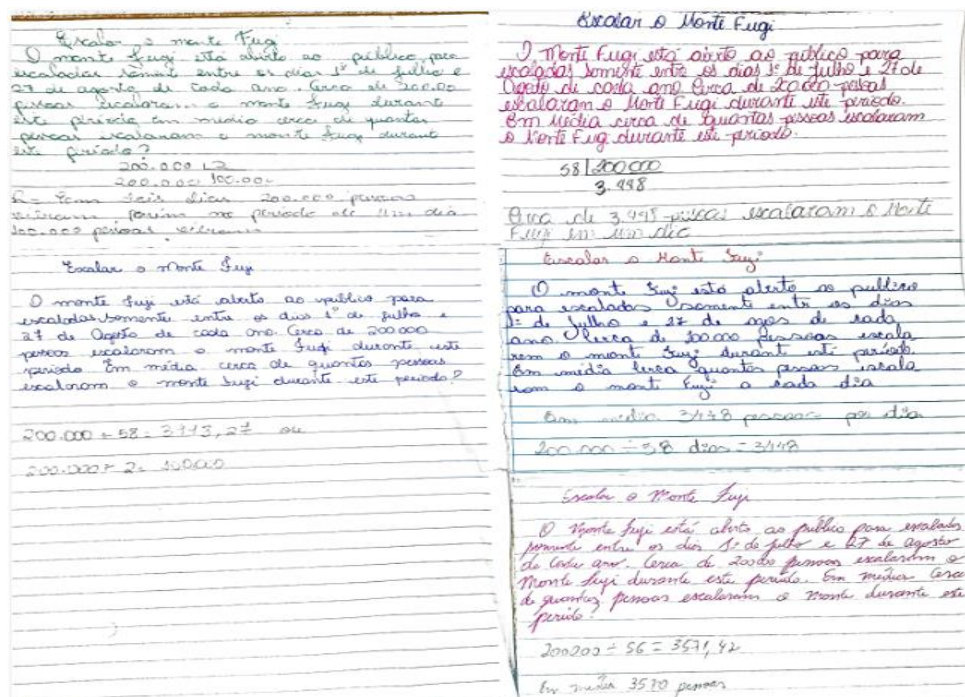 Escalar o monte Fugi
O monte Fugi está aberto ao público para
escaladas somente entre os dias 1º de julho e
27 de agosto de cada ano. Cerca de 200.00
pessoas escalaram o monte Fugi durante
este período em média cerca de quantas
pessoas escalaram o monte Fugi durant
este período?
200.000 2
200.000 100.00
R= dois dias 200.000 pessoas
porém no período de um dia
100.000 pessoas
Escalar o monte Fuji
O monte Fuji está aberto ao público para
escaladas somente entre os dias 1º de julho e
27 de Agosto de cada ano. Cerca de 200000
pessoas escalaram o monte Fugi durante este
período Em média cerca de quantas pessoas
escalaram o monte Fugi durante este período?
200.000 ÷ 58 = 3113,27 ou
200.000 ÷ 2=
Escalar o Monte Fugi
O Monte Fugi está aberto ao público para
escaladas somente entre os dias 1º de julho e 27 de
Agosto de cada ano Cerca de 20000 pessoas
escalaram o Monte Fugi durante este período.
Em Média cerca de quantas pessoas escalaram
o Monte Fug durante este período.
58 200000
3.448
Cerca de pessoas escalaram o Monte
Fugi em um dia
Escalar o Monte Fugi
O monte Fugi está aberto ao publico
para escaladas somente entre os dias
1º de Julho e 27 de agos de cada
ano Cerca de 200.000 pessoas escala
ram o monte Fugi durant este período.
Em média cerca quantas pessoas escala
ram o monte Fugi a cada dia
Em média 3448 pessoas por dia
200 000 ÷ 58 dias = 3448
Escalar o Monte Fuji
O Monte Fuji está aberto ao público para escaladas
somente entre os dias 1º de julho e 27 de agosto
de cada ano. Cerca de pessoas escalaram o
Monte Fuji durante este período. Em média Cerca
de quantas pessoas escalaram o Monte durante este
período?
200200 ÷ 56 = 3571,42
Em média 3570 pessoas